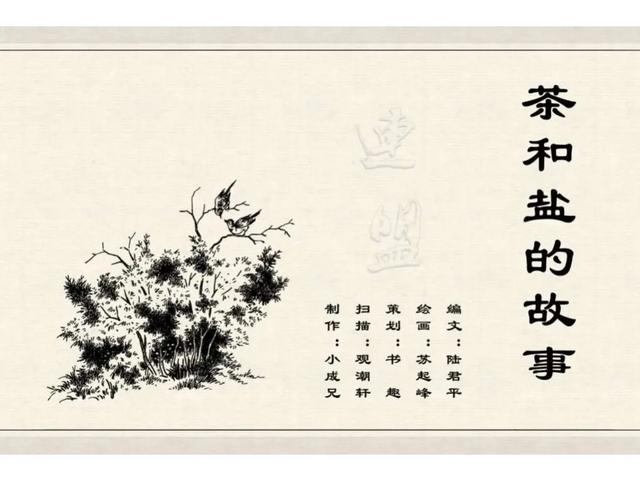 茶和盐的故事
编文：陆君平
绘画：苏起峰
策划：书 趣
扫描：观潮轩
制作：小成兄
連盟